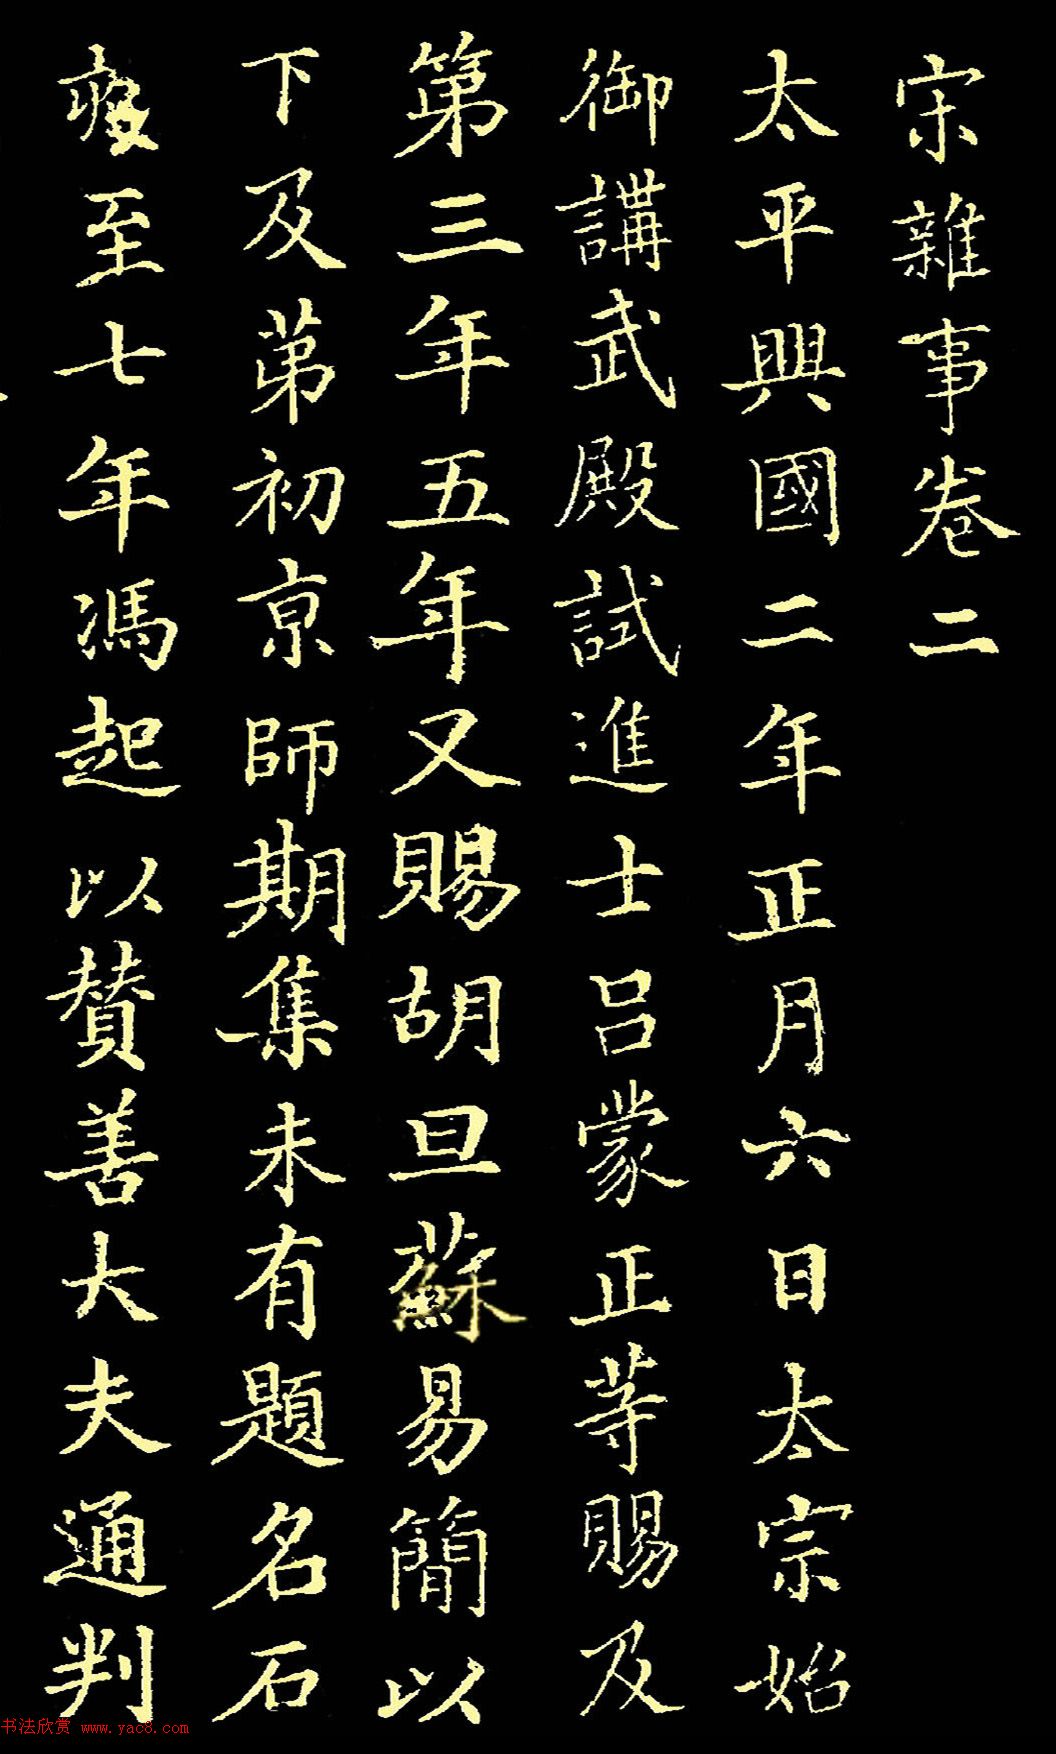 宋雜事卷二
太平興國二年正月六日太宗始
御講武殿試進士呂蒙正等賜及
第三年五年又賜胡旦蘇易簡以
下及第初京師期集未有題名石
至七年馮起以贊善大夫通判
书法欣赏 www.yac8.com